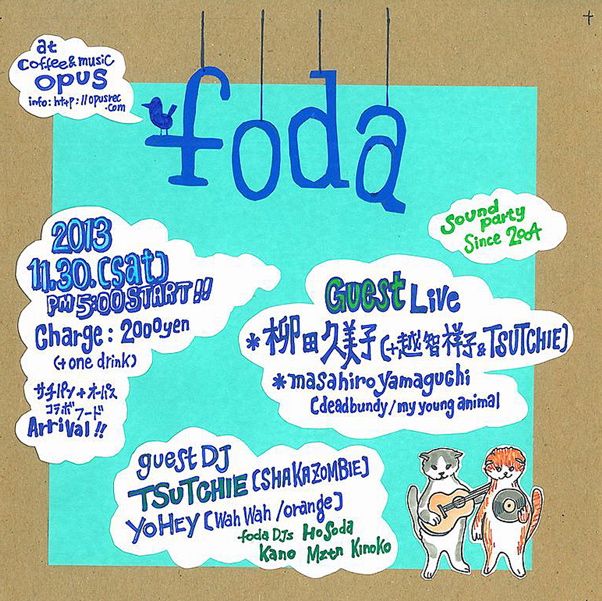 at
coffee & music
opus
info: http://opusrec
.com
foda
Sound
party
Since 2004
2013
11.30.(sat)
PM 5:00 START!!
Charge: 2000yen
(+one drink)
サチパン+オーパス
コラボフード
Arrival!!
Guest Live
*柳田久美子(+越智祥子&TSUTCHIE)
*masahiro yamaguchi
(deadbundy/my young animal
guest DJ
TSUTCHIE (SHAKAZOMBIE)
YOHEY (Wah Wah/orange)
foda DJs HoSoda
Kano Mztn Kinoko